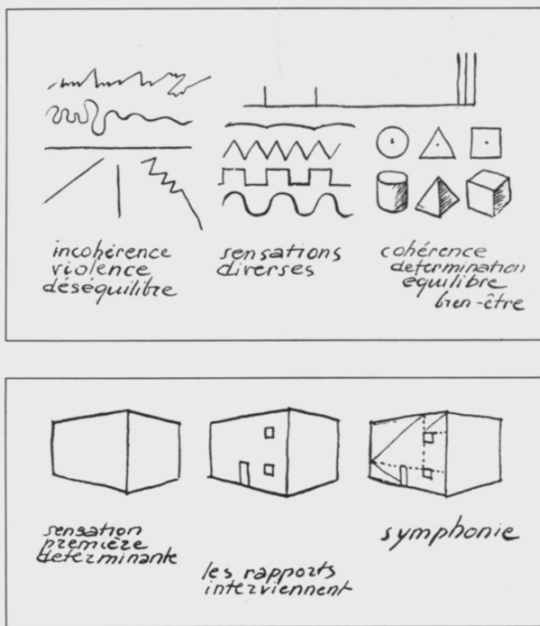 incohérence
violence
déséquilibre
sensations
diverses
cohérence
determination
équilibre
bien-être
sensation
première
déterminante
les rapports
interviennent
symphonie